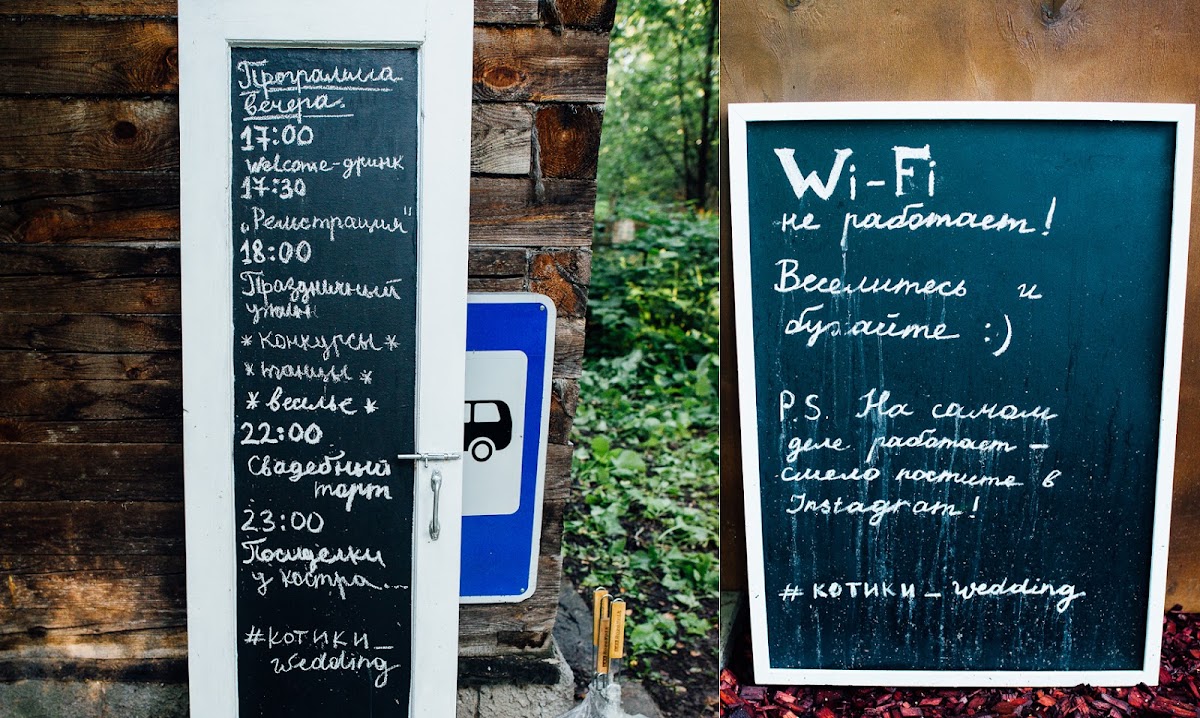 Программа
вечера.
17:00
welcome-дринк
17:30
„Регистрация"
18:00
Праздничный
ужин
*конкурсы*
*танцы*
*веселье*
22:00
Свадебный
торт
23:00
Посиделки
у костра...
#котики_
wedding
Wi-Fi
не работает!
Веселитесь и
бухайте :)
P.S. На самом
деле работает –
смело постите в
Instagram!
#котики_wedding